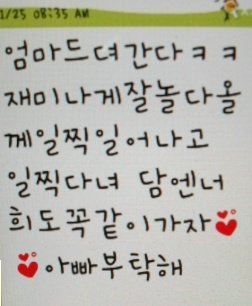 1/25 08:35 AM
엄마드뎌간다ㅋㅋ
재미나게잘놀다올
께일찍일어나고
일찍다녀 담엔너
희도꼭같이가자♥
♥아빠부탁해